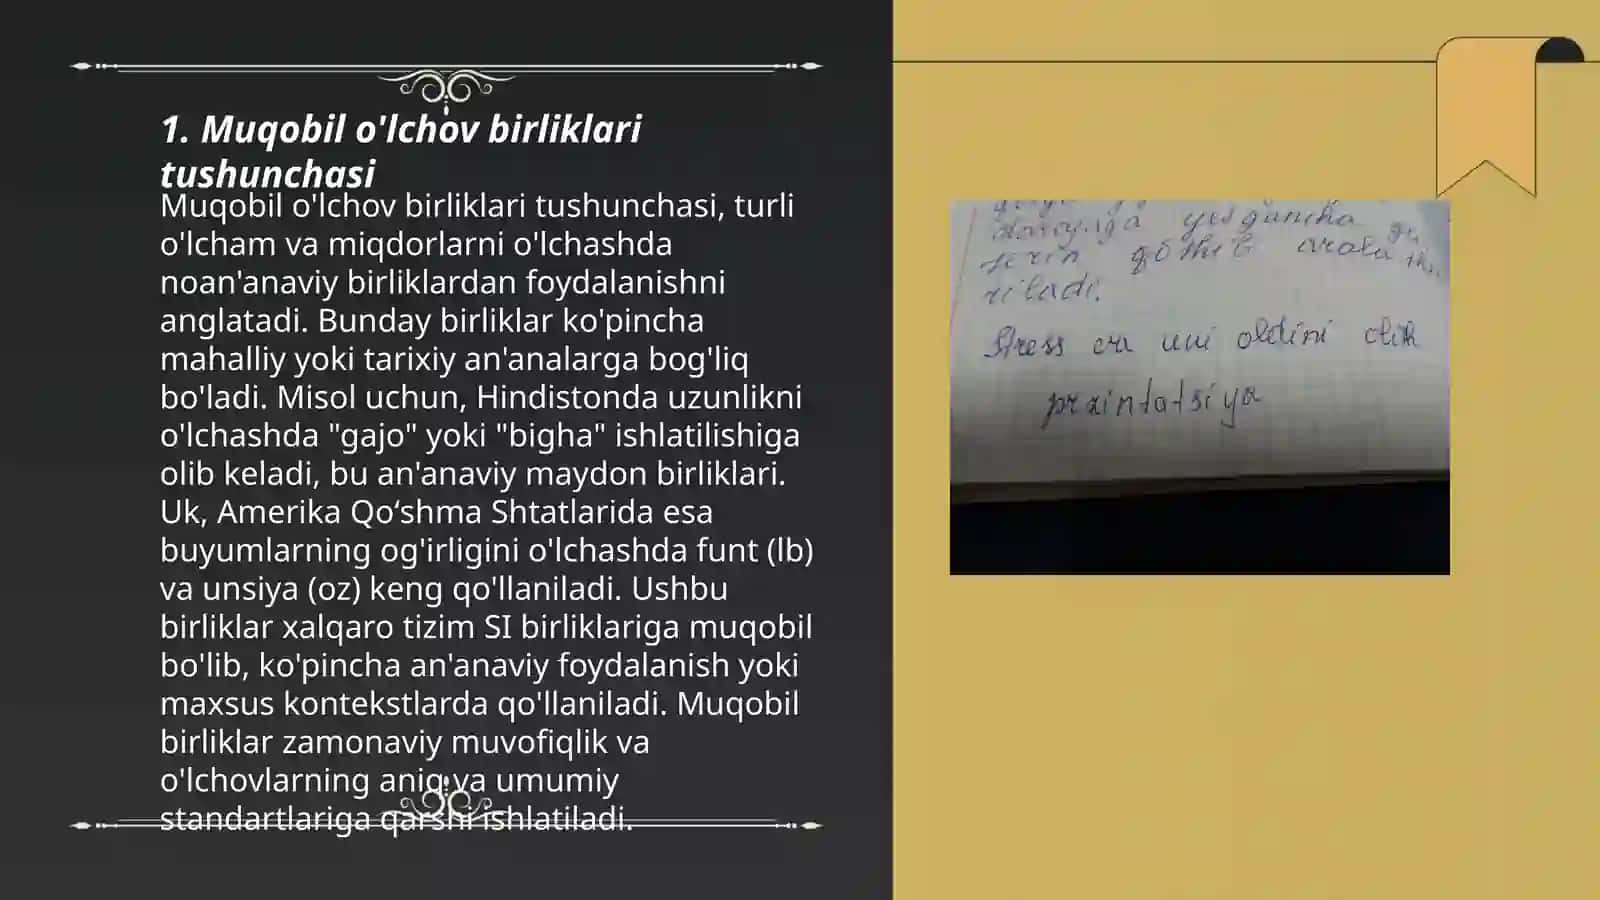 1. Muqobil o'lchov birliklari
tushunchasi
Muqobil o'lchov birliklari tushunchasi, turli
o'lcham va miqdorlarni o'lchashda
noan'anaviy birliklardan foydalanishni
anglatadi. Bunday birliklar ko'pincha
mahalliy yoki tarixiy an'analarga bog'liq
bo'ladi. Misol uchun, Hindistonda uzunlikni
o'lchashda "gajo" yoki "bigha" ishlatilishiga
olib keladi, bu an'anaviy maydon birliklari.
Uk, Amerika Qo‘shma Shtatlarida esa
buyumlarning og'irligini o'lchashda funt (lb)
va unsiya (oz) keng qo'llaniladi. Ushbu
birliklar xalqaro tizim SI birliklariga muqobil
bo'lib, ko'pincha an'anaviy foydalanish yoki
maxsus kontekstlarda qo'llaniladi. Muqobil
birliklar zamonaviy muvofiqlik va
o'lchovlarning aniq va umumiy
standartlariga qarshi ishlatiladi.
yetguncha
qo'shib
riladi.
Stress va uni oldini olish
prazintatsiya